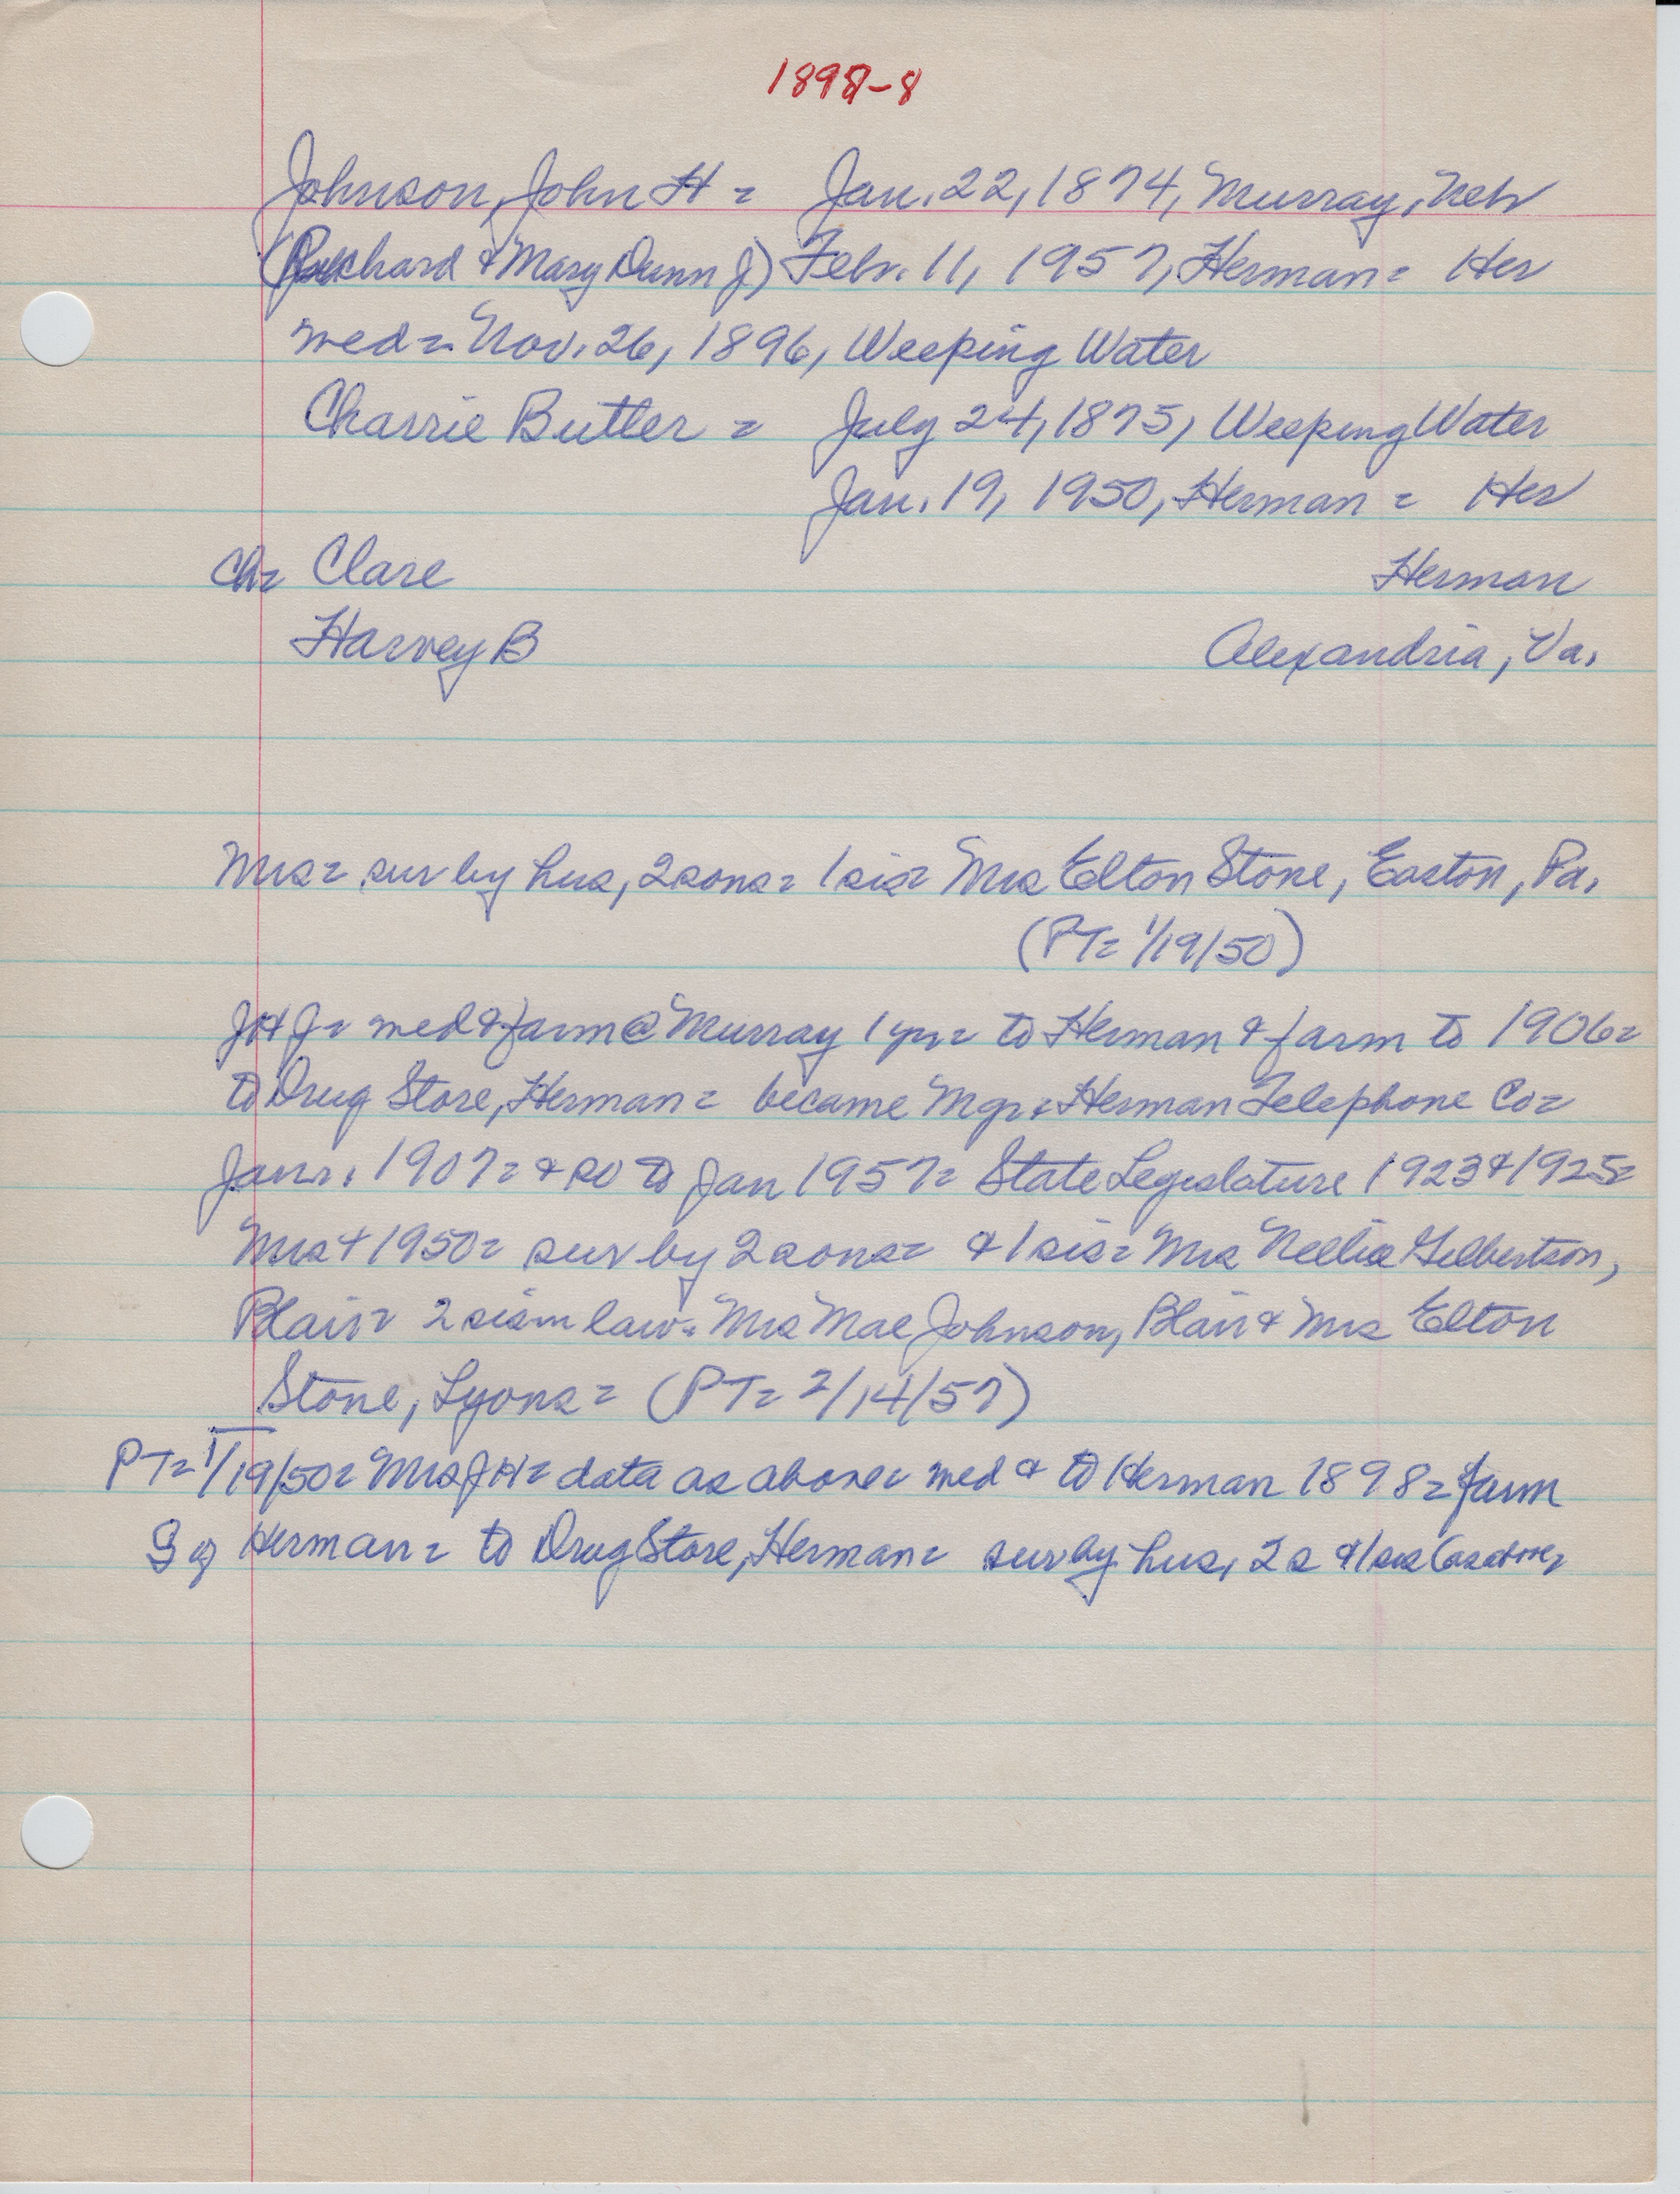 1898-8
Johnson, John H = Jan. 22, 1874, Murray, Neb
(Richard & Mary Dunn J) Febr. 11, 1957, Herman = Her
med = Nov. 26, 1896, Weeping Water
Charrie Butler = July 24, 1875, Weeping Water
Jan. 19, 1950, Herman = Her
Ch= Clare Herman
Harvey B Alexandria, Va.
Mrs = sur by hus, 2 sons = 1 sis = Mrs Elton Stone, Easton, Pa.
(PT= 1/19/50)
JHJ= med & farm @ Murray 1 yr = to Herman & farm to 1906=
to Drug Store, Herman = became Mgr= Herman Telephone Co=
Janr. 1907= & so to Jan 1957= State Legislature 1923 & 1925=
Mrs + 1950= sur by 2 sons= & 1 sis= Mrs Nellie Gilbertson,
Blair= 2 sis in law= Mrs Mae Johnson, Blair & Mrs Elton
Stone, Lyons= (PT= 2/14/57)
PT= 1/19/50= Mrs JH= data as above= med & to Herman 1898= farm
S of Herman= to Drug Store, Herman= sur by hus, 2 s & 1 sis (as above=